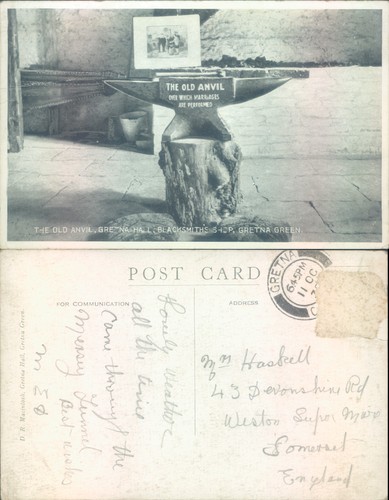 THE OLD ANVIL
OVER WHICH MARRIAGES
ARE PERFORMED
THE OLD ANVIL, GRETNA HALL, BLACKSMITHS SHOP, GRETNA GREEN.
POST CARD
FOR COMMUNICATION
ADDRESS
GRETNA
6 45 PM
11 OC
Lovely weather
all the time
Came through the
Mersey Tunnel
Best wishes
Mrs Haskell
43 Devonshire Rd
Weston Super Mare
Somerset
England